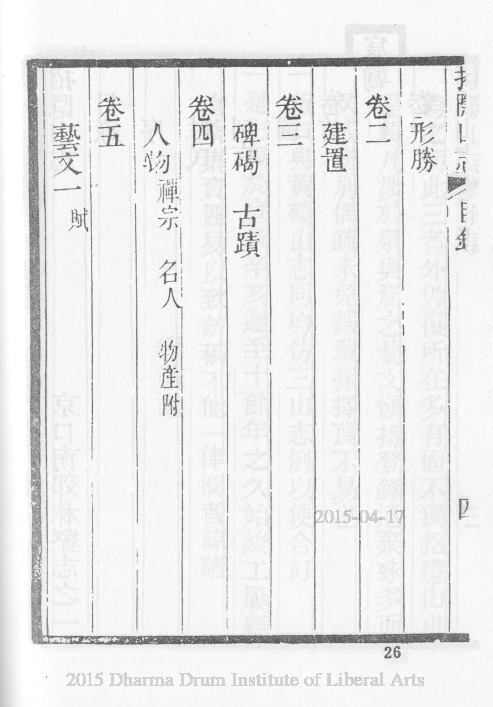 招隱山志 目錄 四
形勝
卷二
建置
卷三
碑碣 古蹟
卷四
人物 禪宗 名人 物產附
卷五
藝文一 賦
2015-04-17
26
2015 Dharma Drum Institute of Liberal Arts